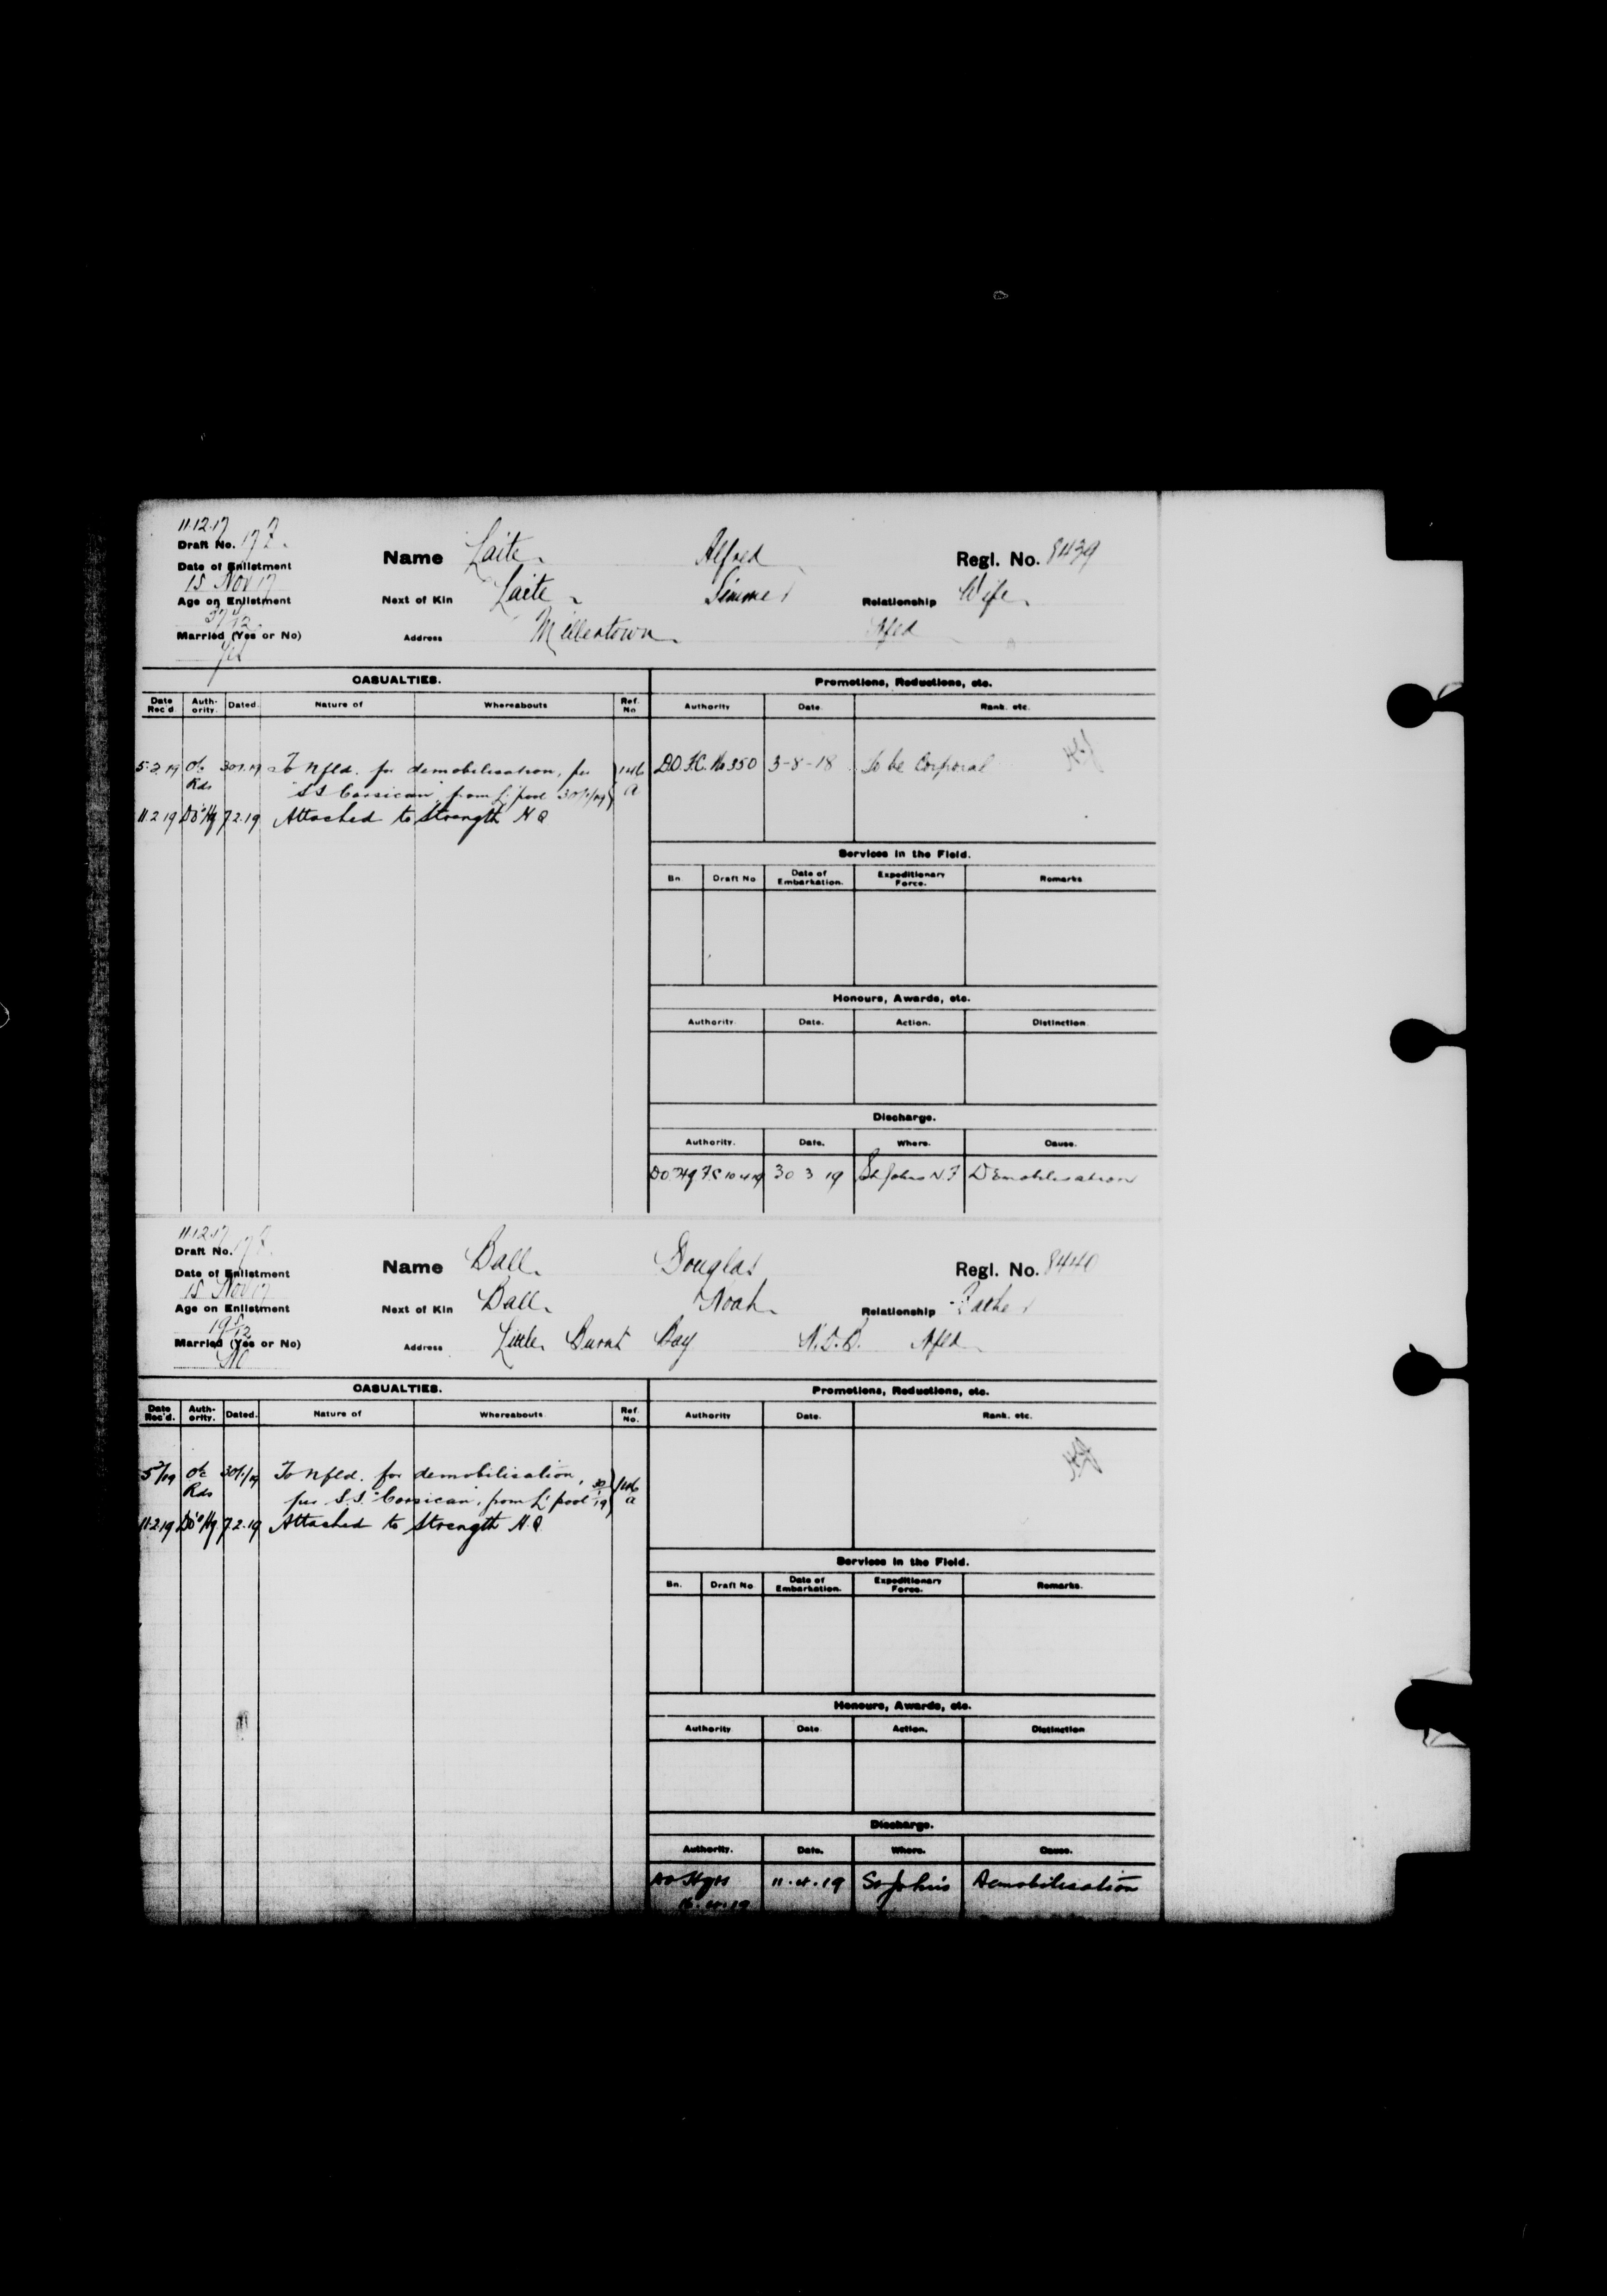 11.12.17
Draft No. 17
Name Laite Alfred Regl. No. 8439
Date of Enlistment
15 Nov 17
Next of Kin Laite Relationship Wife
Age on Enlistment
Address Millertown Nfld
Married (Yes or No)
Yes
CASUALTIES. Promotions, Reductions, etc.
Date Rec'd. Auth-ority. Dated. Nature of Whereabouts Ref. No Authority Date. Rank. etc.
5.2.19 O/c Rds 30.1.19 To Nfld. for demobilisation, per 146 D.O.F.C. No 350 3-8-18 To be Corporal
"S.S Corsican", from L'pool 30/1/19 A
11.2.19 DO Hq 7.2.19 Attached to Strength H Q
Services in the Field.
Bn. Draft No Date of Embarkation. Expeditionary Force. Remarks
Honours, Awards, etc.
Authority. Date. Action. Distinction.
Discharge.
Authority. Date. Where. Cause.
DO Hq F.C 10 4 19 30 3 19 St Johns N.F Demobilisation
11.12.17
Draft No. 17
Name Ball Douglas Regl. No. 8440
Date of Enlistment
15 Nov 17
Next of Kin Ball Noah Relationship Father
Age on Enlistment
19 5/12
Address Little Burnt Bay N.D.B. Nfld
Married (Yes or No)
No
CASUALTIES. Promotions, Reductions, etc.
Date Rec'd. Auth-ority. Dated. Nature of Whereabouts Ref. No. Authority Date. Rank. etc.
5/2/19 O/c Rds 30/1/19 To Nfld. for demobilisation, 146
per S.S. "Corsican", from L'pool 30/1/19 A
11.2.19 DO Hq 7.2.19 Attached to Strength H.Q
Services in the Field.
Bn. Draft No Date of Embarkation. Expeditionary Force. Remarks.
Honours, Awards, etc.
Authority Date. Action. Distinction
Discharge.
Authority. Date. Where. Cause.
DO Hqrs 11.4.19 St John's Demobilisation
16.4.19